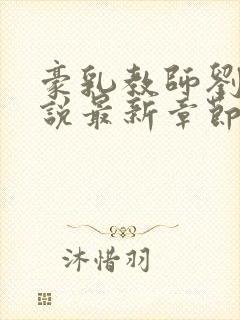 豪乳教師劉
說最新章節
沐惜羽